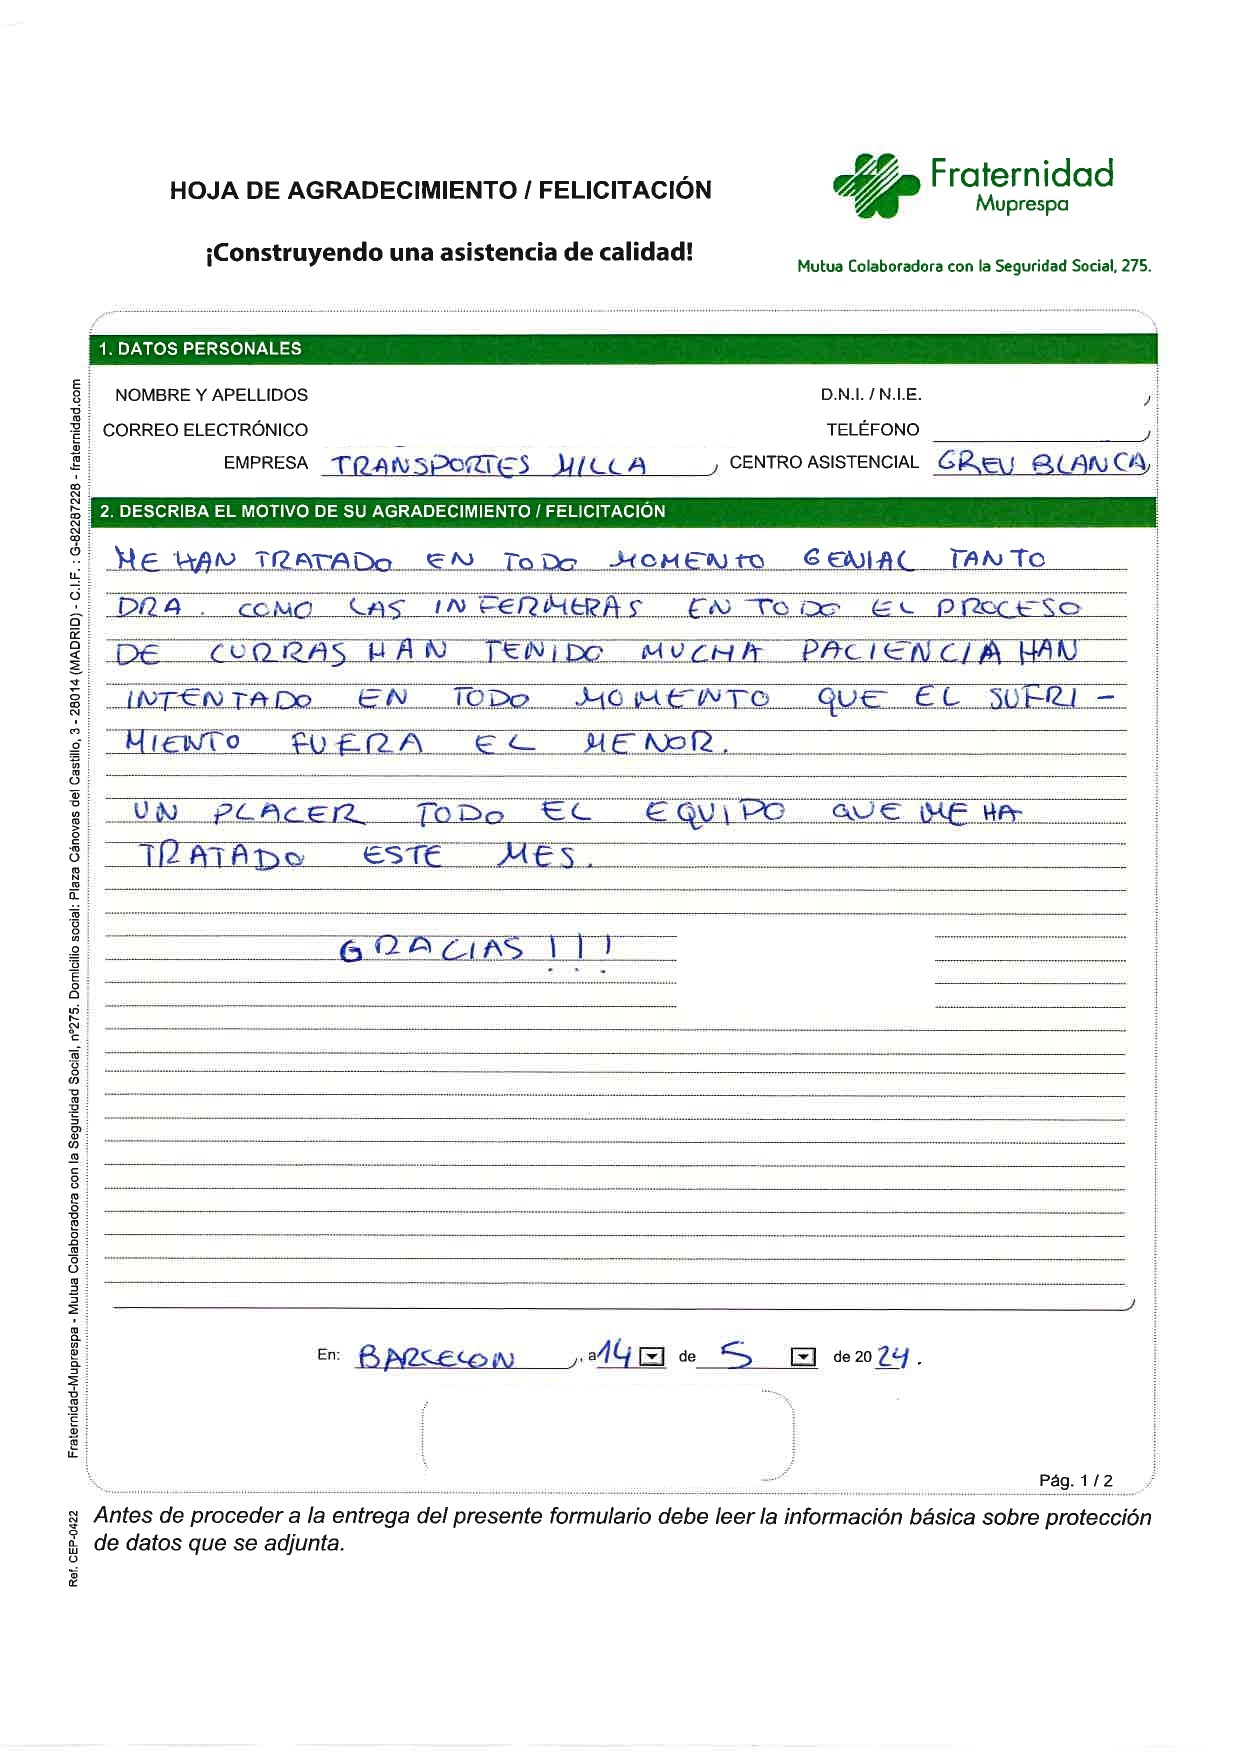 HOJA DE AGRADECIMIENTO / FELICITACIÓN
¡Construyendo una asistencia de calidad!
Fraternidad
Muprespa
Mutua Colaboradora con la Seguridad Social, 275.
1. DATOS PERSONALES
NOMBRE Y APELLIDOS D.N.I. / N.I.E. ,
CORREO ELECTRÓNICO TELÉFONO ,
EMPRESA TRANSPORTES MILLA , CENTRO ASISTENCIAL CREU BLANCA,
2. DESCRIBA EL MOTIVO DE SU AGRADECIMIENTO / FELICITACIÓN
ME HAN TRATADO EN TODO MOMENTO GENIAL TANTO
DRA. COMO LAS INFERMERAS EN TODO EL PROCESO
DE CURRAS HAN TENIDO MUCHA PACIENCIA HAN
INTENTADO EN TODO MOMENTO QUE EL SUFRI -
MIENTO FUERA EL MENOR.
UN PLACER TODO EL EQUIPO QUE ME HA
TRATADO ESTE MES.
GRACIAS !!!
En: BARCELON , a 14 de 5 de 20 24 .
Pág. 1 / 2
Antes de proceder a la entrega del presente formulario debe leer la información básica sobre protección
de datos que se adjunta.
Fraternidad-Muprespa - Mutua Colaboradora con la Seguridad Social, nº275. Domicilio social: Plaza Cánovas del Castillo, 3 - 28014 (MADRID) - C.I.F. : G-82287228 - fraternidad.com
Ref. CEP-0422